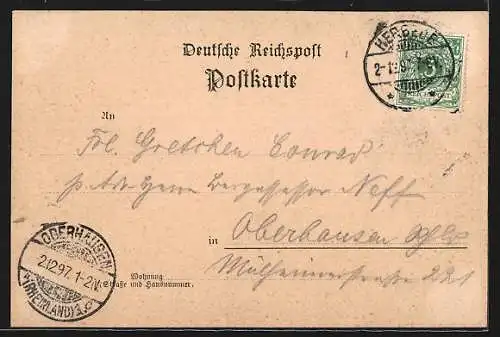 Deutsche Reichspost
Postkarte
An
Frl. Gretchen Conrad
p. Adr. Herrn Bergassessor Neff
in Oberhausen
Wohnung
(Straße und Hausnummer)
Mülheimerstraße 221
OBERHAUSEN
2.12.97. 1-2N.
(RHEINLAND)